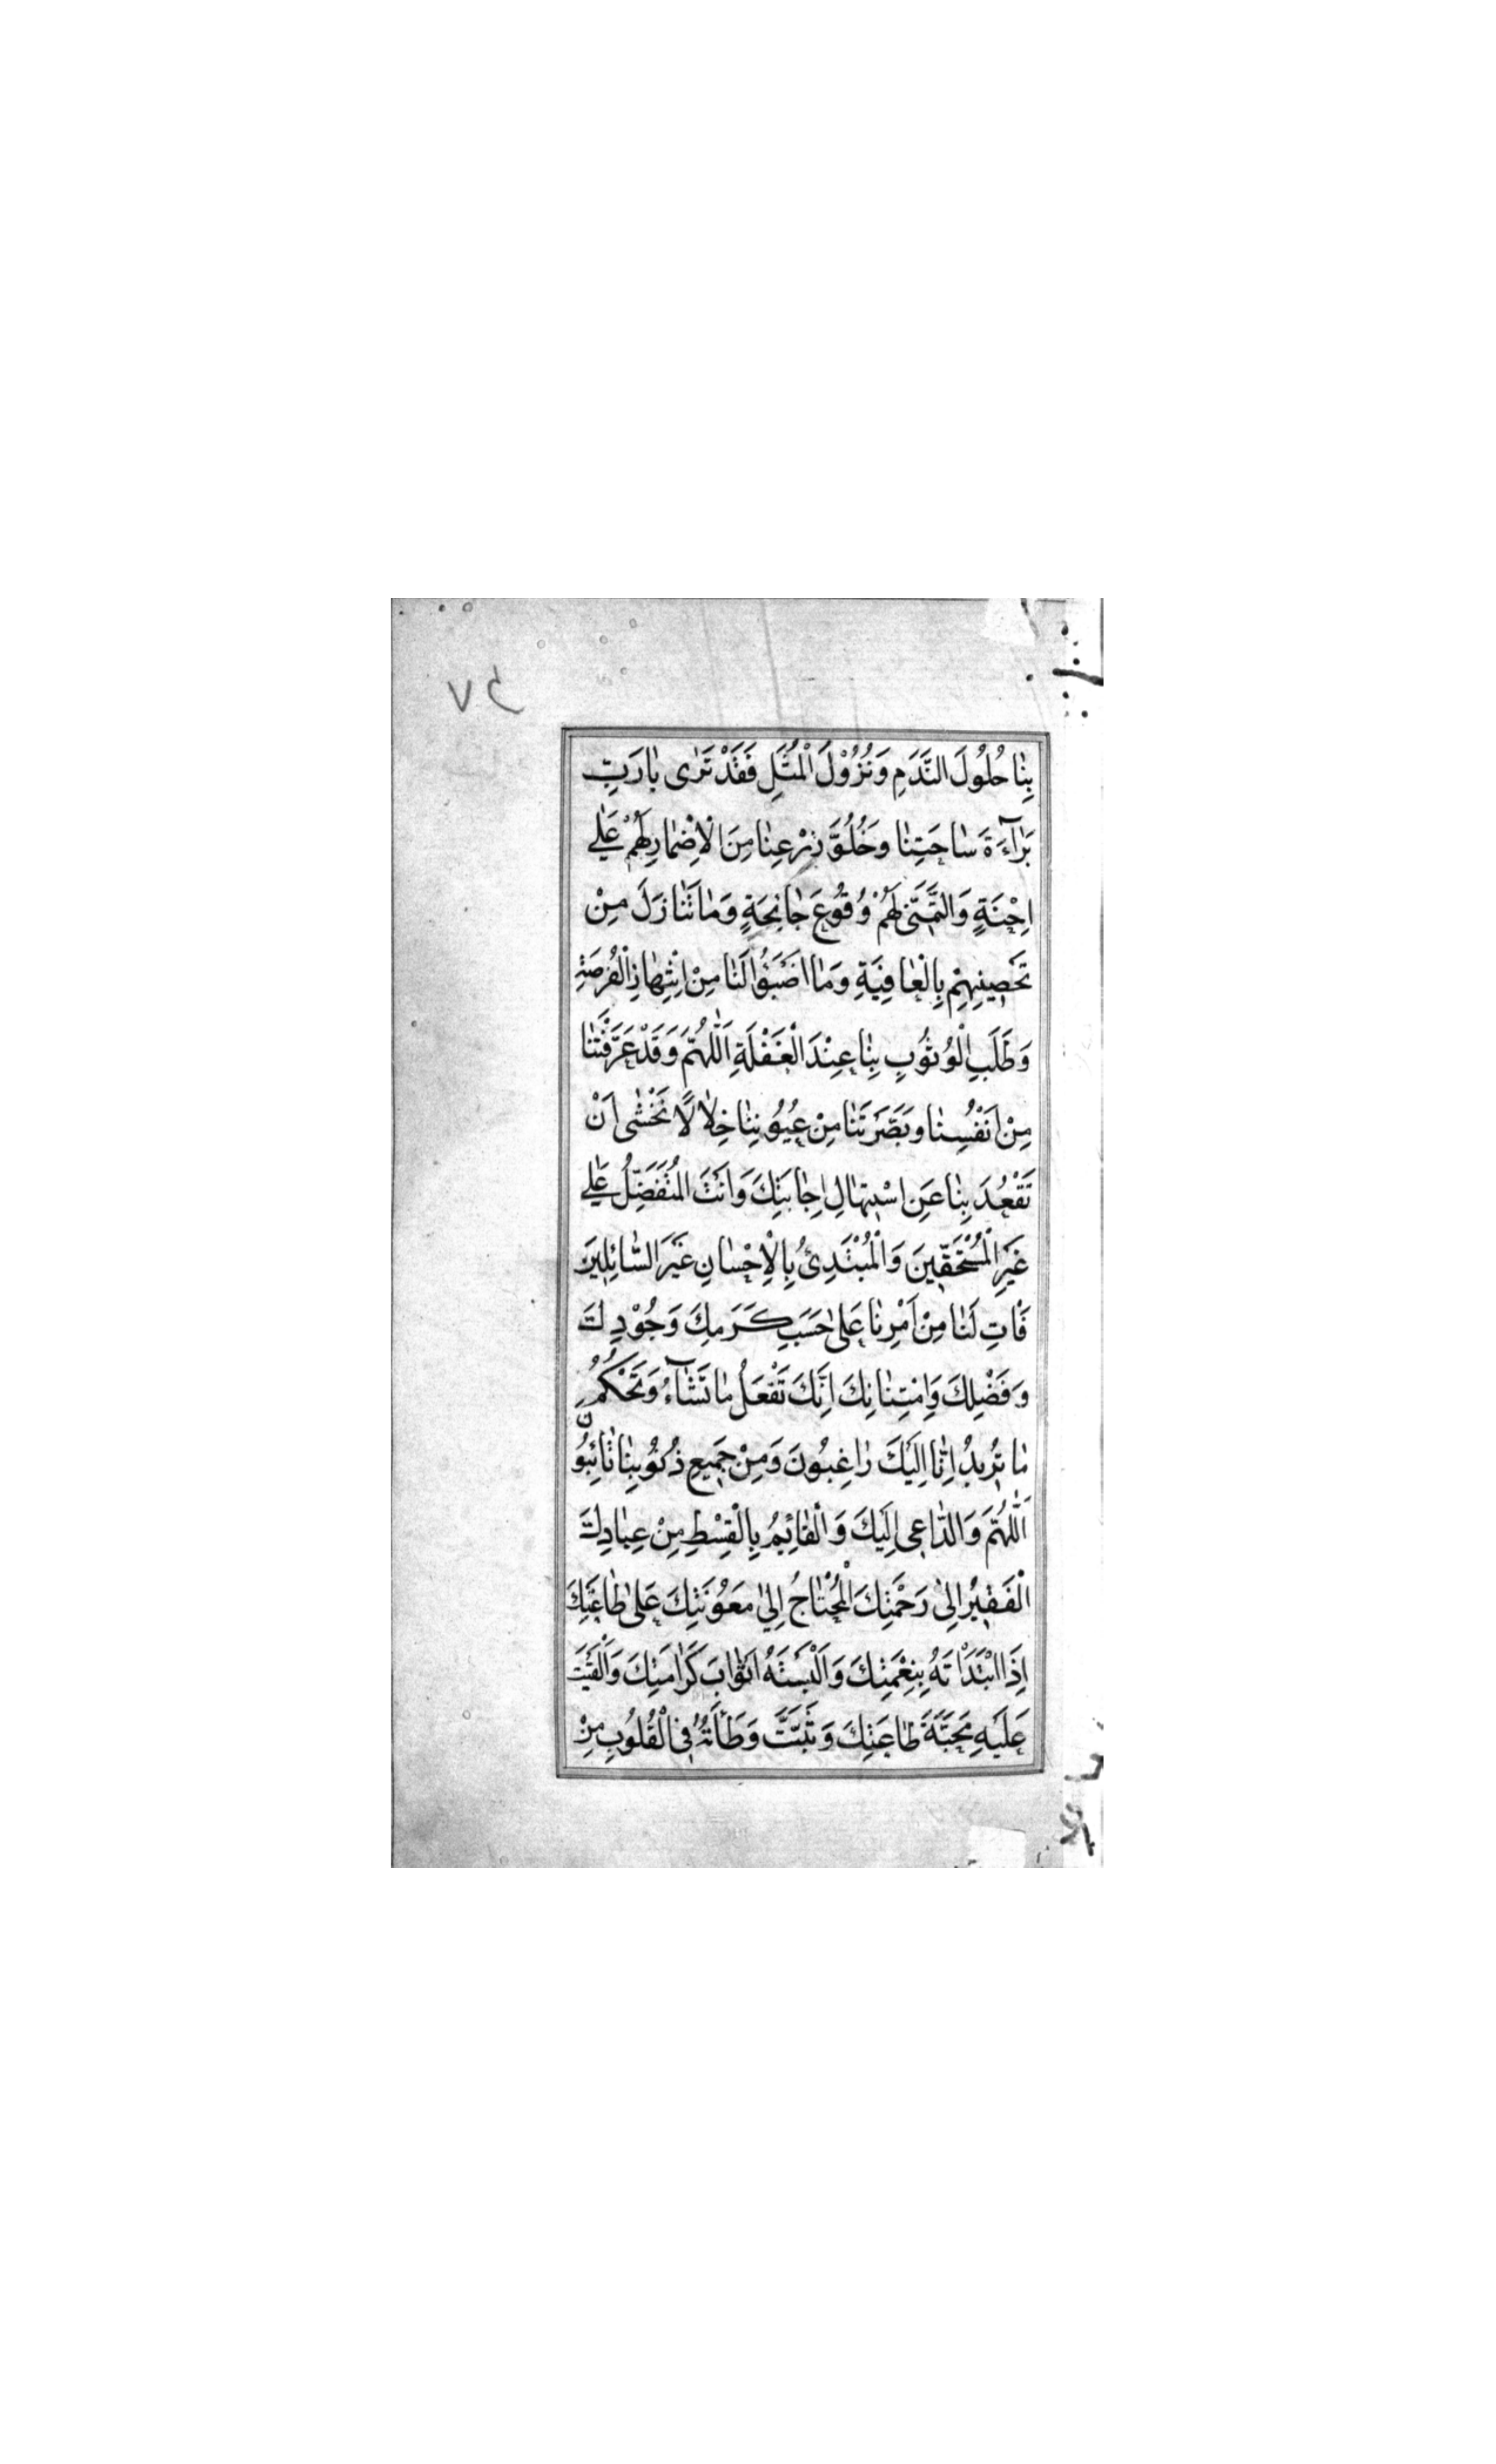 ۵۷
بِنٰا حُلُولَ النَّدَمِ وَنُزُوْلَ الْمُثَلِ فَقَدْ تَرٰى يٰارَبِّ
بَرٰآءَةَ سٰاحَتِنٰا وَخُلُوَّ ذَرْعِنٰا مِنَ الْاِضْمٰارِ لَهُمْ عَلٰى
اِحْنَةٍ وَالتَّمَنّى لَهُمْ وُقُوعَ جٰائِحَةٍ وَمٰا تَنٰازَلَ مِنْ
تَحْصِينِهِمْ بِالْعٰافِيَةِ وَمٰا اَضْبَؤُا لَنٰا مِنْ اِنْتِهٰازِ الْفُرْصَةِ
وَطَلَبِ الْوُثُوبِ بِنٰا عِنْدَ الْغَفْلَةِ اَللّٰهُمَّ وَقَدْ عَرَّفْتَنٰا
مِنْ اَنْفُسِنٰا وَبَصَّرْتَنٰا مِنْ عُيُوبِنٰا خِلٰالًا نَخْشٰى اَنْ
تَقْعُدَ بِنٰا عَنِ اسْتِهٰالِ اِجٰابَتِكَ وَاَنْتَ الْمُتَفَضِّلُ عَلٰى
غَيْرِ الْمُسْتَحَقّينَ وَالْمُبْتَدِئُ بِالْاِحْسٰانِ غَيْرَ السّٰائِلينَ
فَاٰتِ لَنٰا مِنْ اَمْرِنٰا عَلٰى حَسَبِ كَرَمِكَ وَجُوْدِكَ
وَفَضْلِكَ وَامْتِنٰانِكَ اِنَّكَ تَفْعَلُ مٰا تَشٰآءُ وَتَحْكُمُ
مٰا تُريدُ اِنّٰا اِلَيْكَ رٰاغِبُونَ وَمِنْ جَميعِ ذُنُوبِنٰا تٰائِبُونَ
اَللّٰهُمَّ وَالدّٰاعى اِلَيْكَ وَالْقٰائِمُ بِالْقِسْطِ مِنْ عِبٰادِكَ
الْفَقيرُ اِلٰى رَحْمَتِكَ الْمُحْتٰاجُ اِلٰى مَعُونَتِكَ عَلٰى طٰاعَتِكَ
اِذَا ابْتَدَاْتَهُ بِنِعْمَتِكَ وَاَلْبَسْتَهُ اَثْوٰابَ كَرٰامَتِكَ وَاَلْقَيْتَ
عَلَيْهِ مَحَبَّةَ طٰاعَتِكَ وَثَبَّتَّ وَطْاَتَهُ فِى الْقُلُوبِ مِنْ